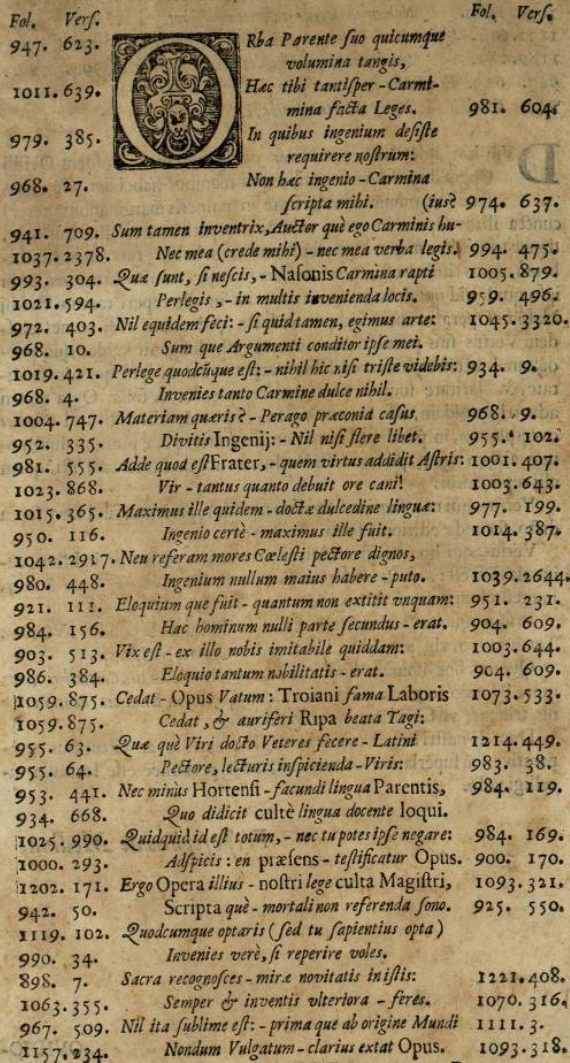 Fol. Verſ. Fol. Verſ.
947. 623. ORba Parente ſuo quicumque
volumina tangis,
1011. 639. Hæc tibi tantiſper - Carmi-
mina facta Leges. 981. 604.
979. 385. In quibus ingenium deſiſte
requirere noſtrum:
968. 27. Non hæc ingenio - Carmina
ſcripta mihi. (ius? 974. 637.
941. 709. Sum tamen inventrix, Auctor què ego Carminis hu-
1037. 2378. Nec mea (crede mihi) - nec mea verba legis. 994. 475.
993. 304. Quæ ſunt, ſi neſcis, - Naſonis Carmina rapti 1005. 879.
1021. 594. Perlegis, - in multis invenienda locis. 959. 496.
972. 403. Nil equidem feci: - ſi quid tamen, egimus arte: 1045. 3320.
968. 10. Sum que Argumenti conditor ipſe mei.
1019. 421. Perlege quodcũque eſt: - nihil hic niſi triſte videbis: 934. 9.
968. 4. Invenies tanto Carmine dulce nihil.
1004. 747. Materiam quæris? - Perago præconia caſus 968. 9.
952. 335. Divitis Ingenij: - Nil niſi flere libet. 955. 102.
981. 555. Adde quod eſt Frater, - quem virtus addidit Aſtris: 1001. 407.
1023. 868. Vir - tantus quanto debuit ore cani! 1003. 643.
1015. 365. Maximus ille quidem - doctæ dulcedine linguæ: 977. 199.
950. 116. Ingenio certè - maximus ille fuit. 1014. 387.
1042. 2917. Neu referam mores Cœleſti pectore dignos,
980. 448. Ingenium nullum maius habere - puto. 1039. 2644.
921. 111. Eloquium que fuit - quantum non extitit vnquam: 951. 231.
984. 156. Hac hominum nulli parte ſecundus - erat. 904. 609.
903. 513. Vix eſt - ex illo nobis imitabile quiddam: 1003. 644.
986. 384. Eloquio tantum nobilitatis - erat. 904. 609.
1059. 875. Cedat - Opus Vatum: Troiani fama Laboris 1073. 533.
1059. 875. Cedat, & auriferi Ripa beata Tagi:
955. 63. Quæ què Viri docto Veteres fecere - Latini 1214. 449.
955. 64. Pectore, lecturis inſpicienda - Viris: 983. 38.
953. 441. Nec minùs Hortenſi - facundi lingua Parentis, 984. 119.
934. 668. Quo didicit cultè lingua docente loqui.
1025. 990. Quidquid id eſt totum, - nec tu potes ipſe negare: 984. 169.
1000. 293. Adſpicis: en præſens - teſtificatur Opus. 900. 170.
1202. 171. Ergo Opera illius - noſtri lege culta Magiſtri, 1093. 321.
942. 50. Scripta què - mortali non referenda ſono. 925. 550.
1119. 102. Quodcumque optaris (ſed tu ſapientius opta)
990. 34. Invenies verè, ſi reperire voles.
898. 7. Sacra recognoſces - miræ novitatis in iſtis: 1221. 408.
1063. 355. Semper & inventis vlteriora - feres. 1070. 316.
967. 509. Nil ita ſublime eſt: - prima que ab origine Mundi 1111. 3.
1157. 234. Nondum Vulgatum - clarius extat Opus. 1093. 318.